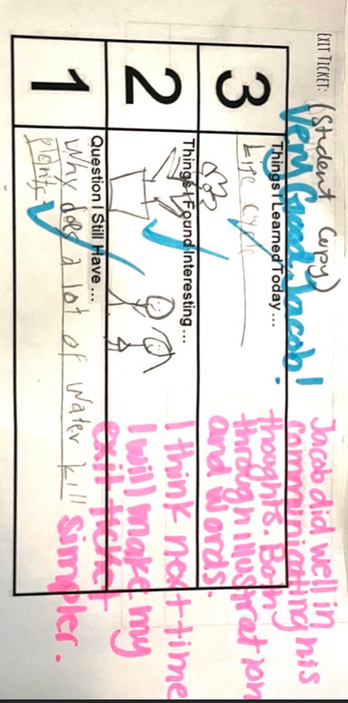 EXIT TICKET: (Student Copy)
Very Good, Jacob!
3
Things I Learned Today ...
Life Cycle
2
Things I Found Interesting ...
1
Question I Still Have ...
Why does a lot of water kill
plants
Jacob did well in
communicating his
thoughts Both
through illustration
and words.
I think next time
I will make my
exit ticket
simpler.